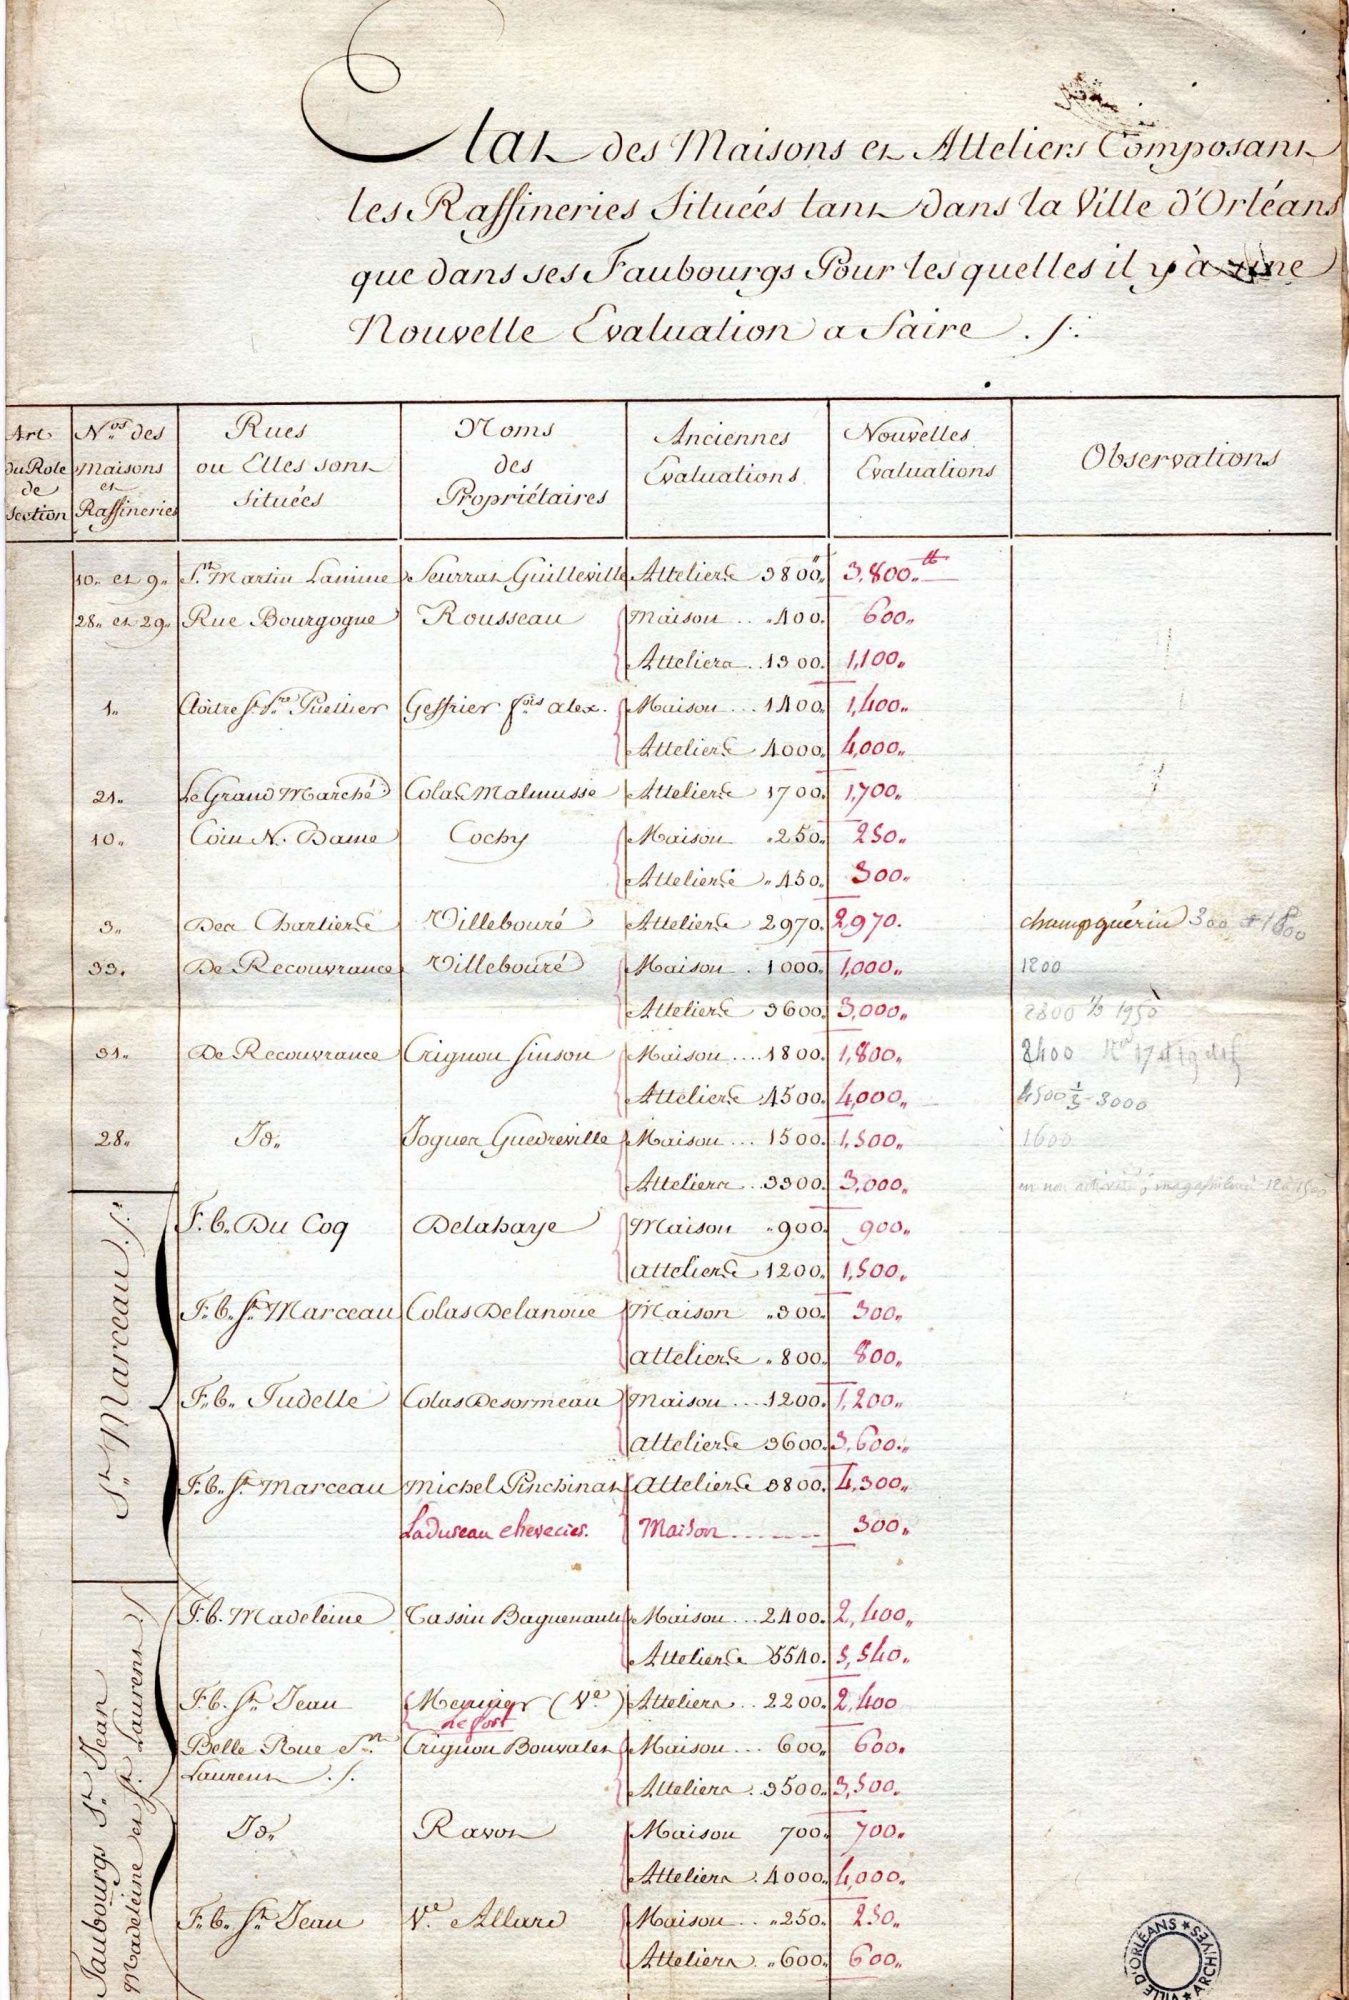 Etat des Maisons et Atteliers Composant
les Raffineries Situées tant dans la Ville d'Orléans
que dans ses Faubourgs Pour lesquelles il y à une
Nouvelle Evaluation a faire ./.
Art du Role de Section | Nos. des Maisons et Raffineries | Rues ou Elles sont situées | Noms des Propriétaires | Anciennes Evaluations. | Nouvelles Evaluations | Observations
10. et 9. St. Martin Lamine Seurrat Guilleville Atteliers 3800 3,800.tt
28. et 29. Rue Bourgogne Rousseau Maison 400. 600.
Atteliers 1300. 1,100.
1. Cloitre St. Pre. Puellier Geffrier fois alex. Maison 1400. 1,400.
Atteliers 4000. 4,000.
21. Le Grand Marché Colas Malmusse Atteliers 1700. 1,700.
10. Coin N. Dame Cochy Maison 250. 250.
Atteliers 450. 300.
3. Des Chartiers Villebouré Atteliers 2970. 2,970. champguérin 300 + 1800
33. De Recouvrance Villebouré Maison 1000. 1,000. 1200
Atteliers 3600. 3,000. 2800 1950
31. De Recouvrance Crignon Sinson Maison 1800. 1,800. 2400
Atteliers 4500. 4,000. 4500 1/3 3000
28. Id. Joguer Guedreville Maison 1500. 1,500. 1600
Atteliers 3300. 3,000. en non activité
St. Marceau ./.
F.b. Du Coq Delahaye Maison 900. 900.
Atteliers 1200. 1,500.
F.b. St. Marceau Colas Delanoue Maison 300. 300.
atteliers 800. 800.
F.b. Tudelle Colas Desormeau Maison 1200. 1,200.
atteliers 3600. 3,600.
F.b. St. Marceau Michel Pinchinat Atteliers 3800. 4,300.
Laduseau Maison 300.
Faubourgs St. Jean
Madeleine et St. Laurens ./.
F.b. Madeleine Tassin Baguenault Maison 2400. 2,400.
Atteliers 5540. 5,540.
F.b. St. Jean Meunier (Ve.) Atteliers 2200. 2,400
Belle Rue St. Crignon Bonvalet Maison 600. 600.
Laurent ./. Atteliers 3500. 3,500.
Id. Ravot Maison 700. 700.
Atteliers 4000. 4,000.
F.b. St. Jean Ve. Allard Maison 250. 250.
Atteliers 600. 600.
VILLE D'ORLÉANS ★ ARCHIVES ★